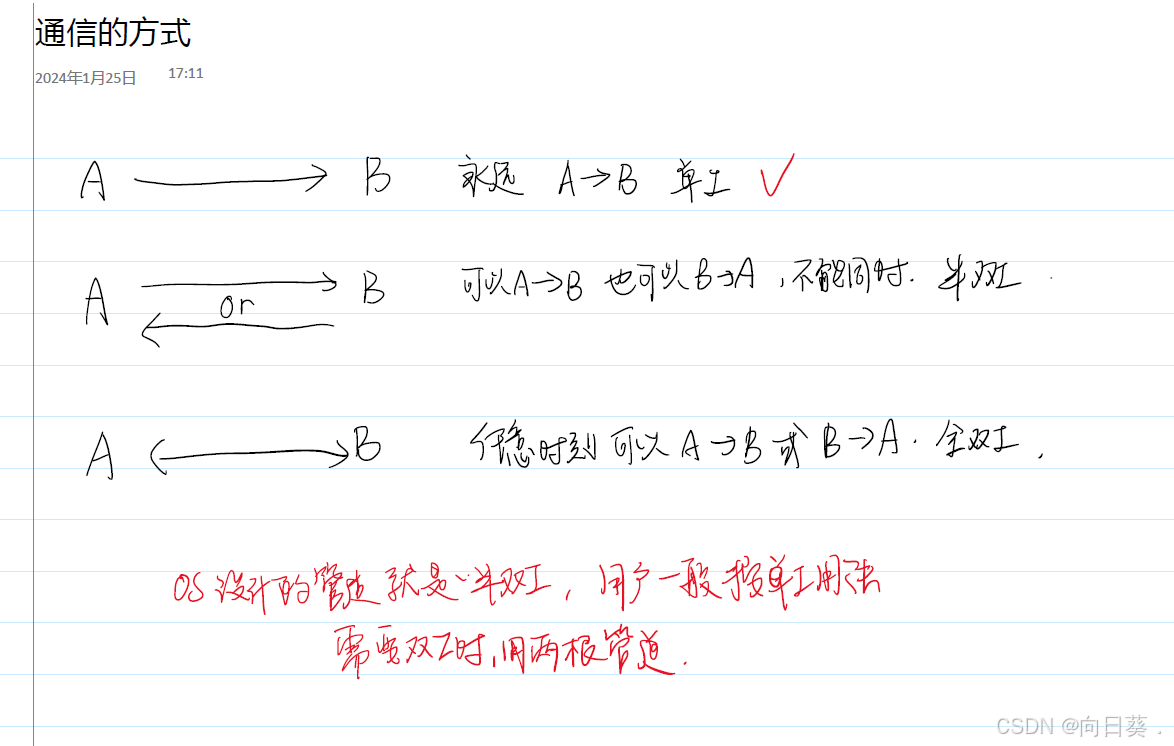 通信的方式
2024年1月25日 17:11
A → B 永远 A→B 单工 ✓
A → B 可以A→B 也可以B→A,不能同时. 半双工
or
A ↔ B 任意时刻可以 A→B 或 B→A. 全双工.
OS设计的管道就是半双工,用户一般按单工用法
需要双工时,用两根管道.
CSDN @向日葵 .